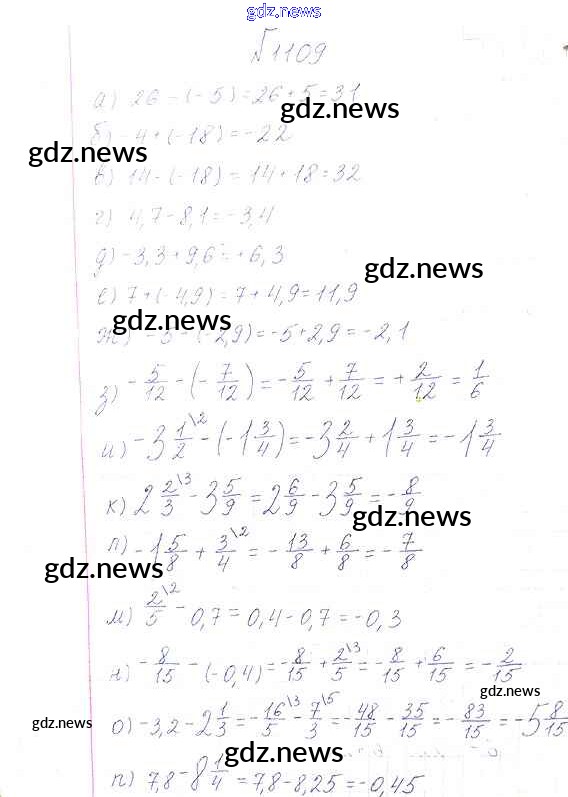 gdz.news
№1109
а) 26 - (-5) = 26 + 5 = 31
gdz.news
б) -4 + (-18) = -22
gdz.news
в) 14 - (-18) = 14 + 18 = 32
г) 4,7 - 8,1 = -3,4
д) -3,3 + 9,6 = +6,3
gdz.news
е) 7 + (-4,9) = 7 + 4,9 = 11,9
gdz.news
ж) -5 - (-2,9) = -5 + 2,9 = -2,1
з) -5/12 - (-7/12) = -5/12 + 7/12 = +2/12 = 1/6
и) -3 1/2\2 - (-1 3/4) = -3 2/4 + 1 3/4 = -1 3/4
к) 2 2/3\3 - 3 5/9 = 2 6/9 - 3 5/9 = -8/9
gdz.news
л) -1 5/8 + 3/4\2 = -13/8 + 6/8 = -7/8
gdz.news
м) 2/5\2 - 0,7 = 0,4 - 0,7 = -0,3
н) -8/15 - (-0,4) = -8/15 + 2/5\3 = -8/15 + 6/15 = -2/15
gdz.news
о) -3,2 - 2 1/3 = -16/5\3 - 7/3\5 = -48/15 - 35/15 = -83/15 = -5 8/15
gdz.news
gdz.news
п) 7,8 - 8 1/4 = 7,8 - 8,25 = -0,45